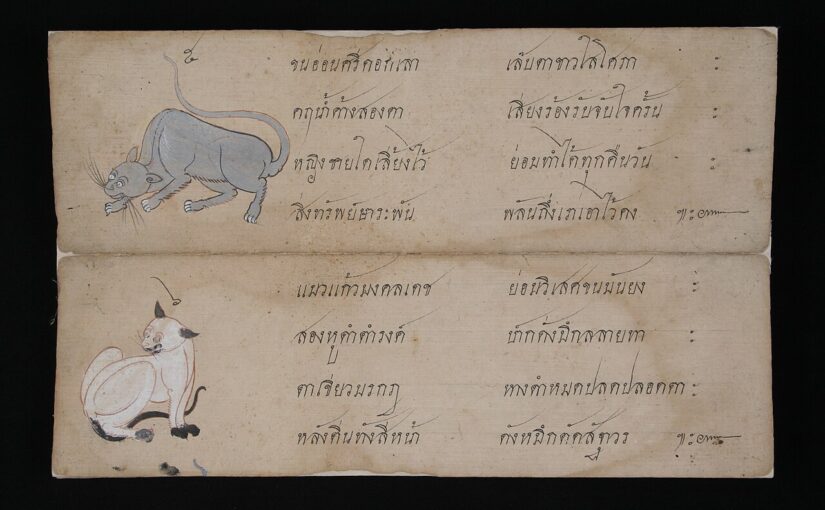 ๕
ขนอ่อนศรีดอกเลา เล็บตาขาวใสโศภา :
คฤน้ำค้างสองตา เสียงร้องรับจับใจครั้น :
หญิงชายใดเลี้ยงไว้ ย่อมทำได้ทุกคืนวัน :
สิ่งทรัพย์ษาระพัน พลันถึง ๚ะ๛
แมวแก้วมงคลเดช ย่อมวิเสศขนมันยง :
สองหูดำดำรงค์ ลลายทา :
ตาเขียวมรกฎ หางดำหมดปลดปลอดตา :
หลังตีนทั้งสี่หน้า ดังหมึก ๚ะ๛